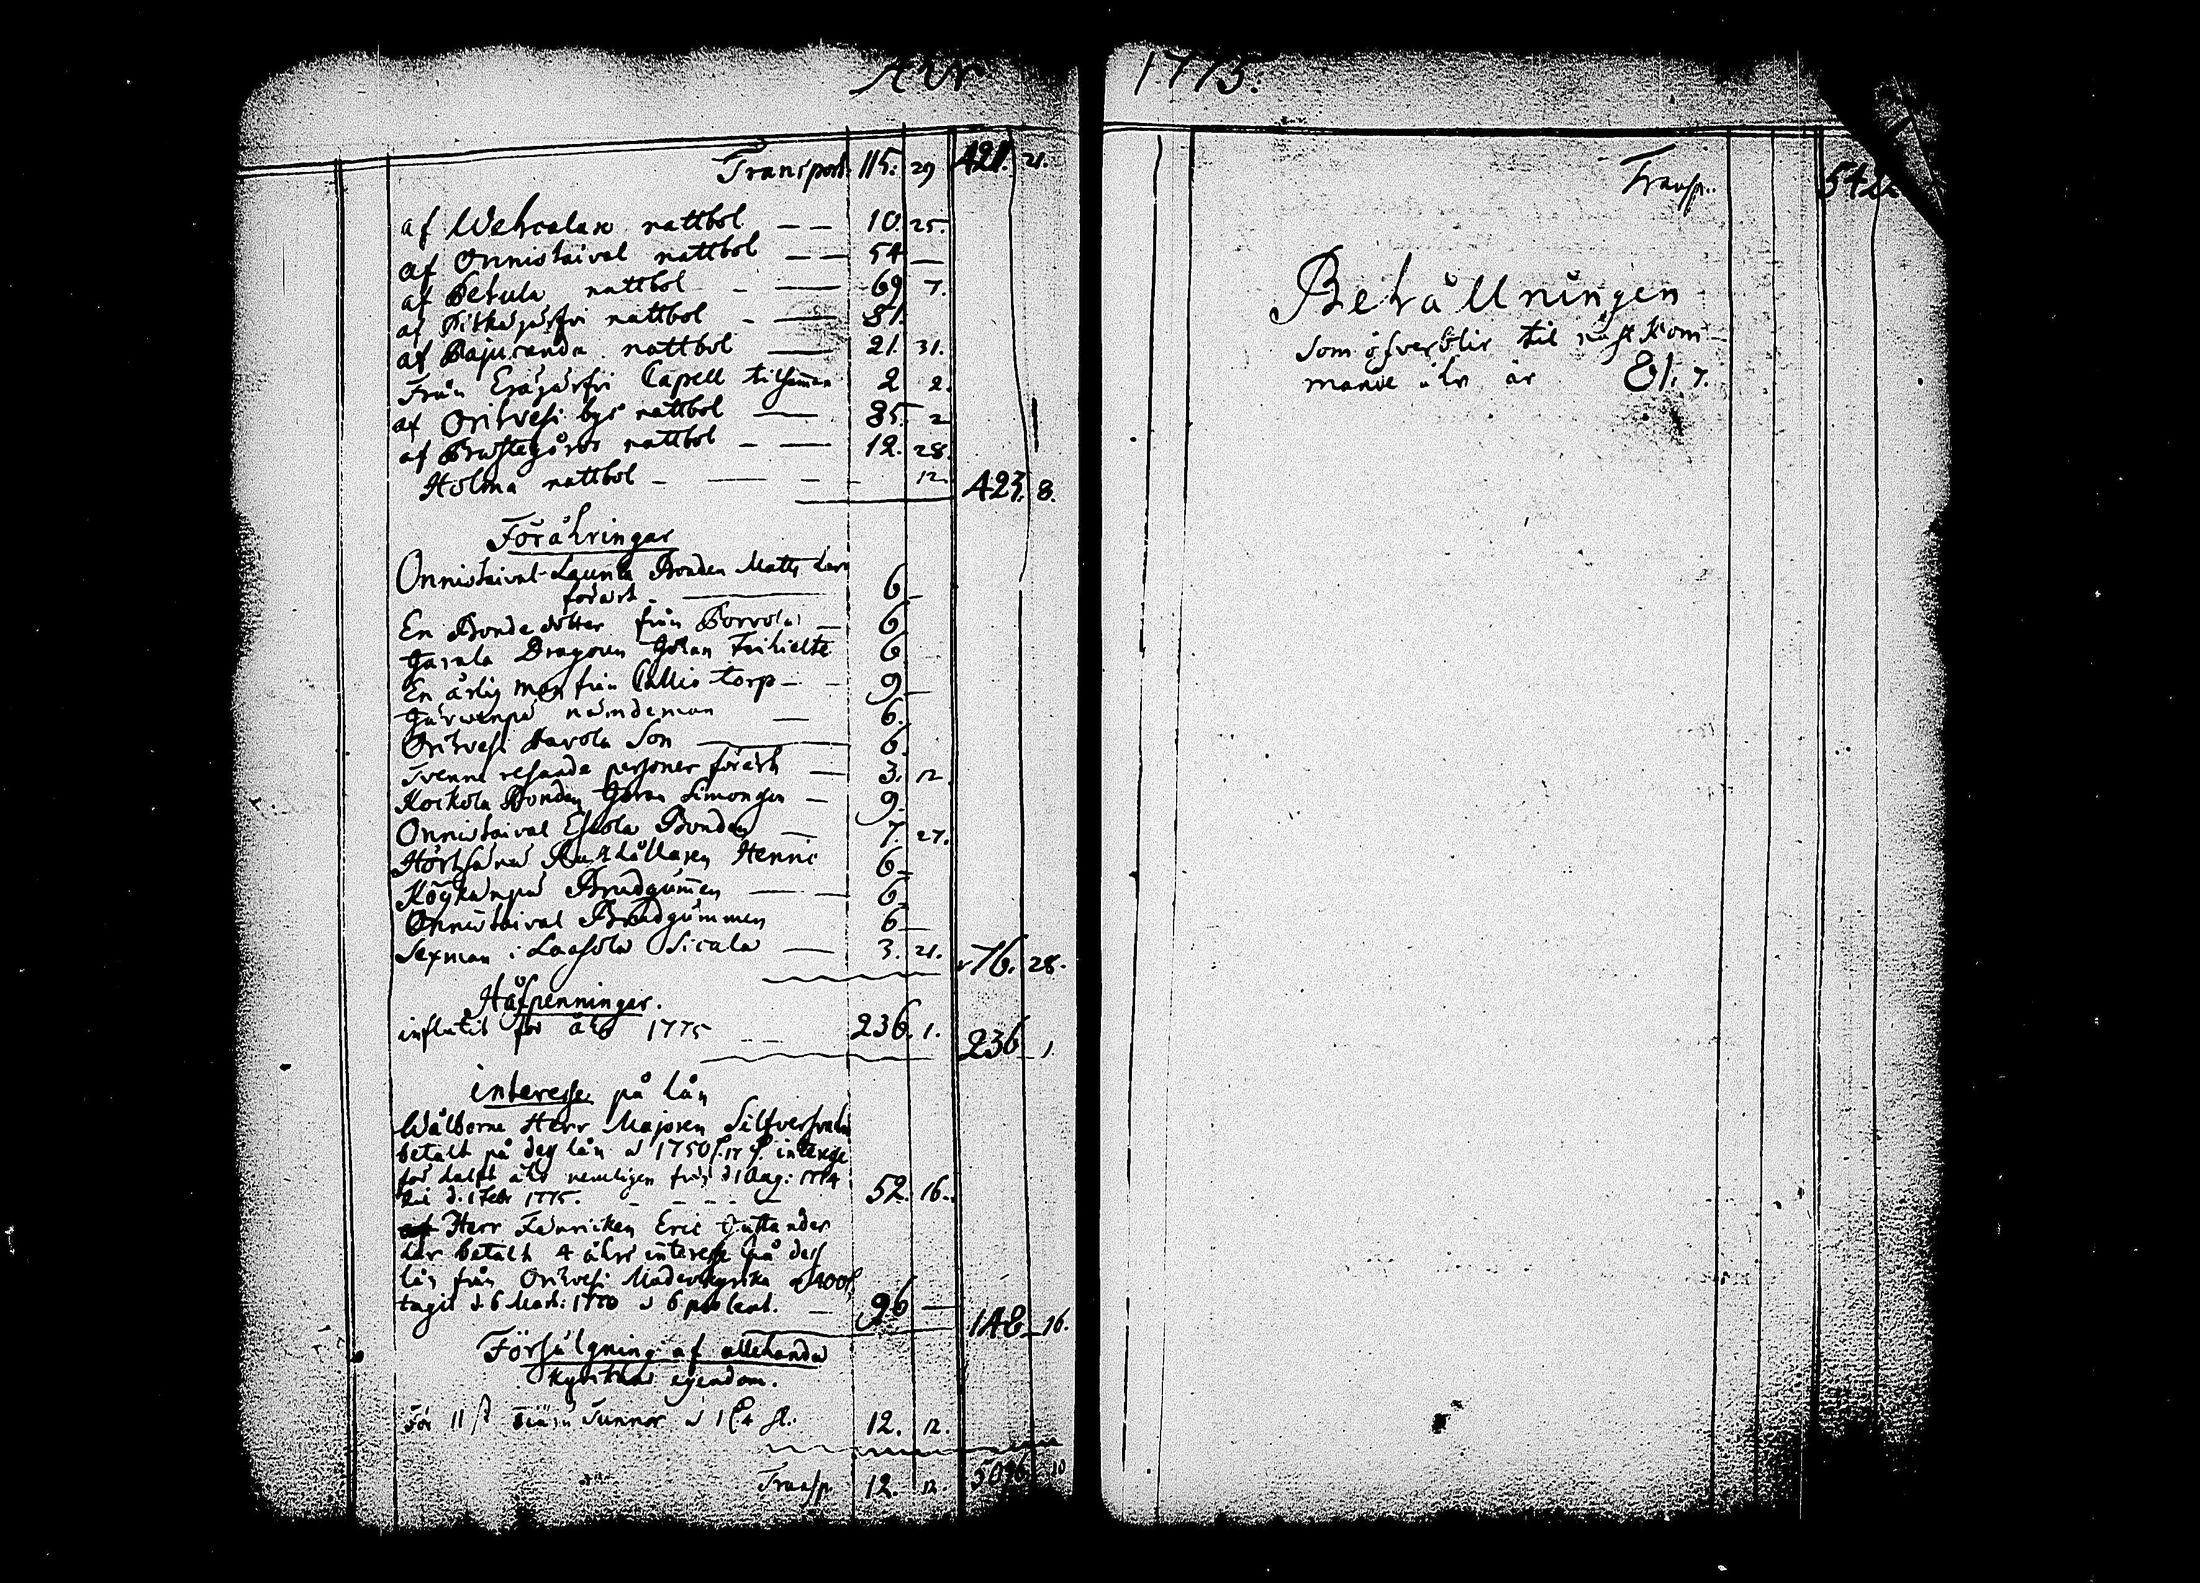 Åhr
Transport. 115. 29 421. 21.
af Wehcalax nattbol — — 10. 25.
af Onnistaival nattbol — — 54 —
af Pehula nattbol - — 69 7.
af Pitkäjärfvi nattbol - — 81.
af Pajucanda nattbol — 21. 31.
Från Eräjärfvi Capell tilsamman 2 2.
af Orihvesi bys nattbol — 85. 2
af Prästegårds nattbol - — 12. 28.
Holma nattbol - — - - 12. 423. 8.
Förähringar
Onnistaival Launla Bonden Matts
förärt - — 6 —
En Bonde dotter från Porrola — 6
Jarala Dragoun Jöran Frihielte 6
En ärlig man från Callio torp — - 9 —
Järvenpä nämdeman — 6.
Orihvesi Havola Son — 6.
Tvenne resande personer förärt — 3. 12
Kockola Bonden Göran Simonson — 9.
Onnistaival Eskola Bonden — 7. 27.
Hörtsänä Rusthållaren Henric 6 —
Köykänpä Brudgummen — — 6
Onnistaival Brudgummen 6 —
Sexman i Laasola Sicala — 3. 21. 76. 28.
Håfpenningar.
influtit för åhr 1775 236. 1. 236 1.
interesse på lån
Wälborne Herr Majoren
betalt på dess lån à 1750 interesse
för halft åhr nemligen från d. 1 Aug: 1774
til d. 1 Febr 1775. - - - - 52. 16.
af Herr Fenricken Eric
har betalt 4 åhrs interesse på dess
lån från Orihvesi Moderkyrka à 400
tagit d. 6 Mart: 1770 à 6 pro Cent. — 96 — 148 — 16.
Försälgning af allehanda
kyrkans egendom.
För 11 st Tiäru Tunnor à 12. 12.
Transp 12. 12. 10
1775.
Transp..
Behållningen
som öfverblir til nästkom-
mande åhr är 81. 7.